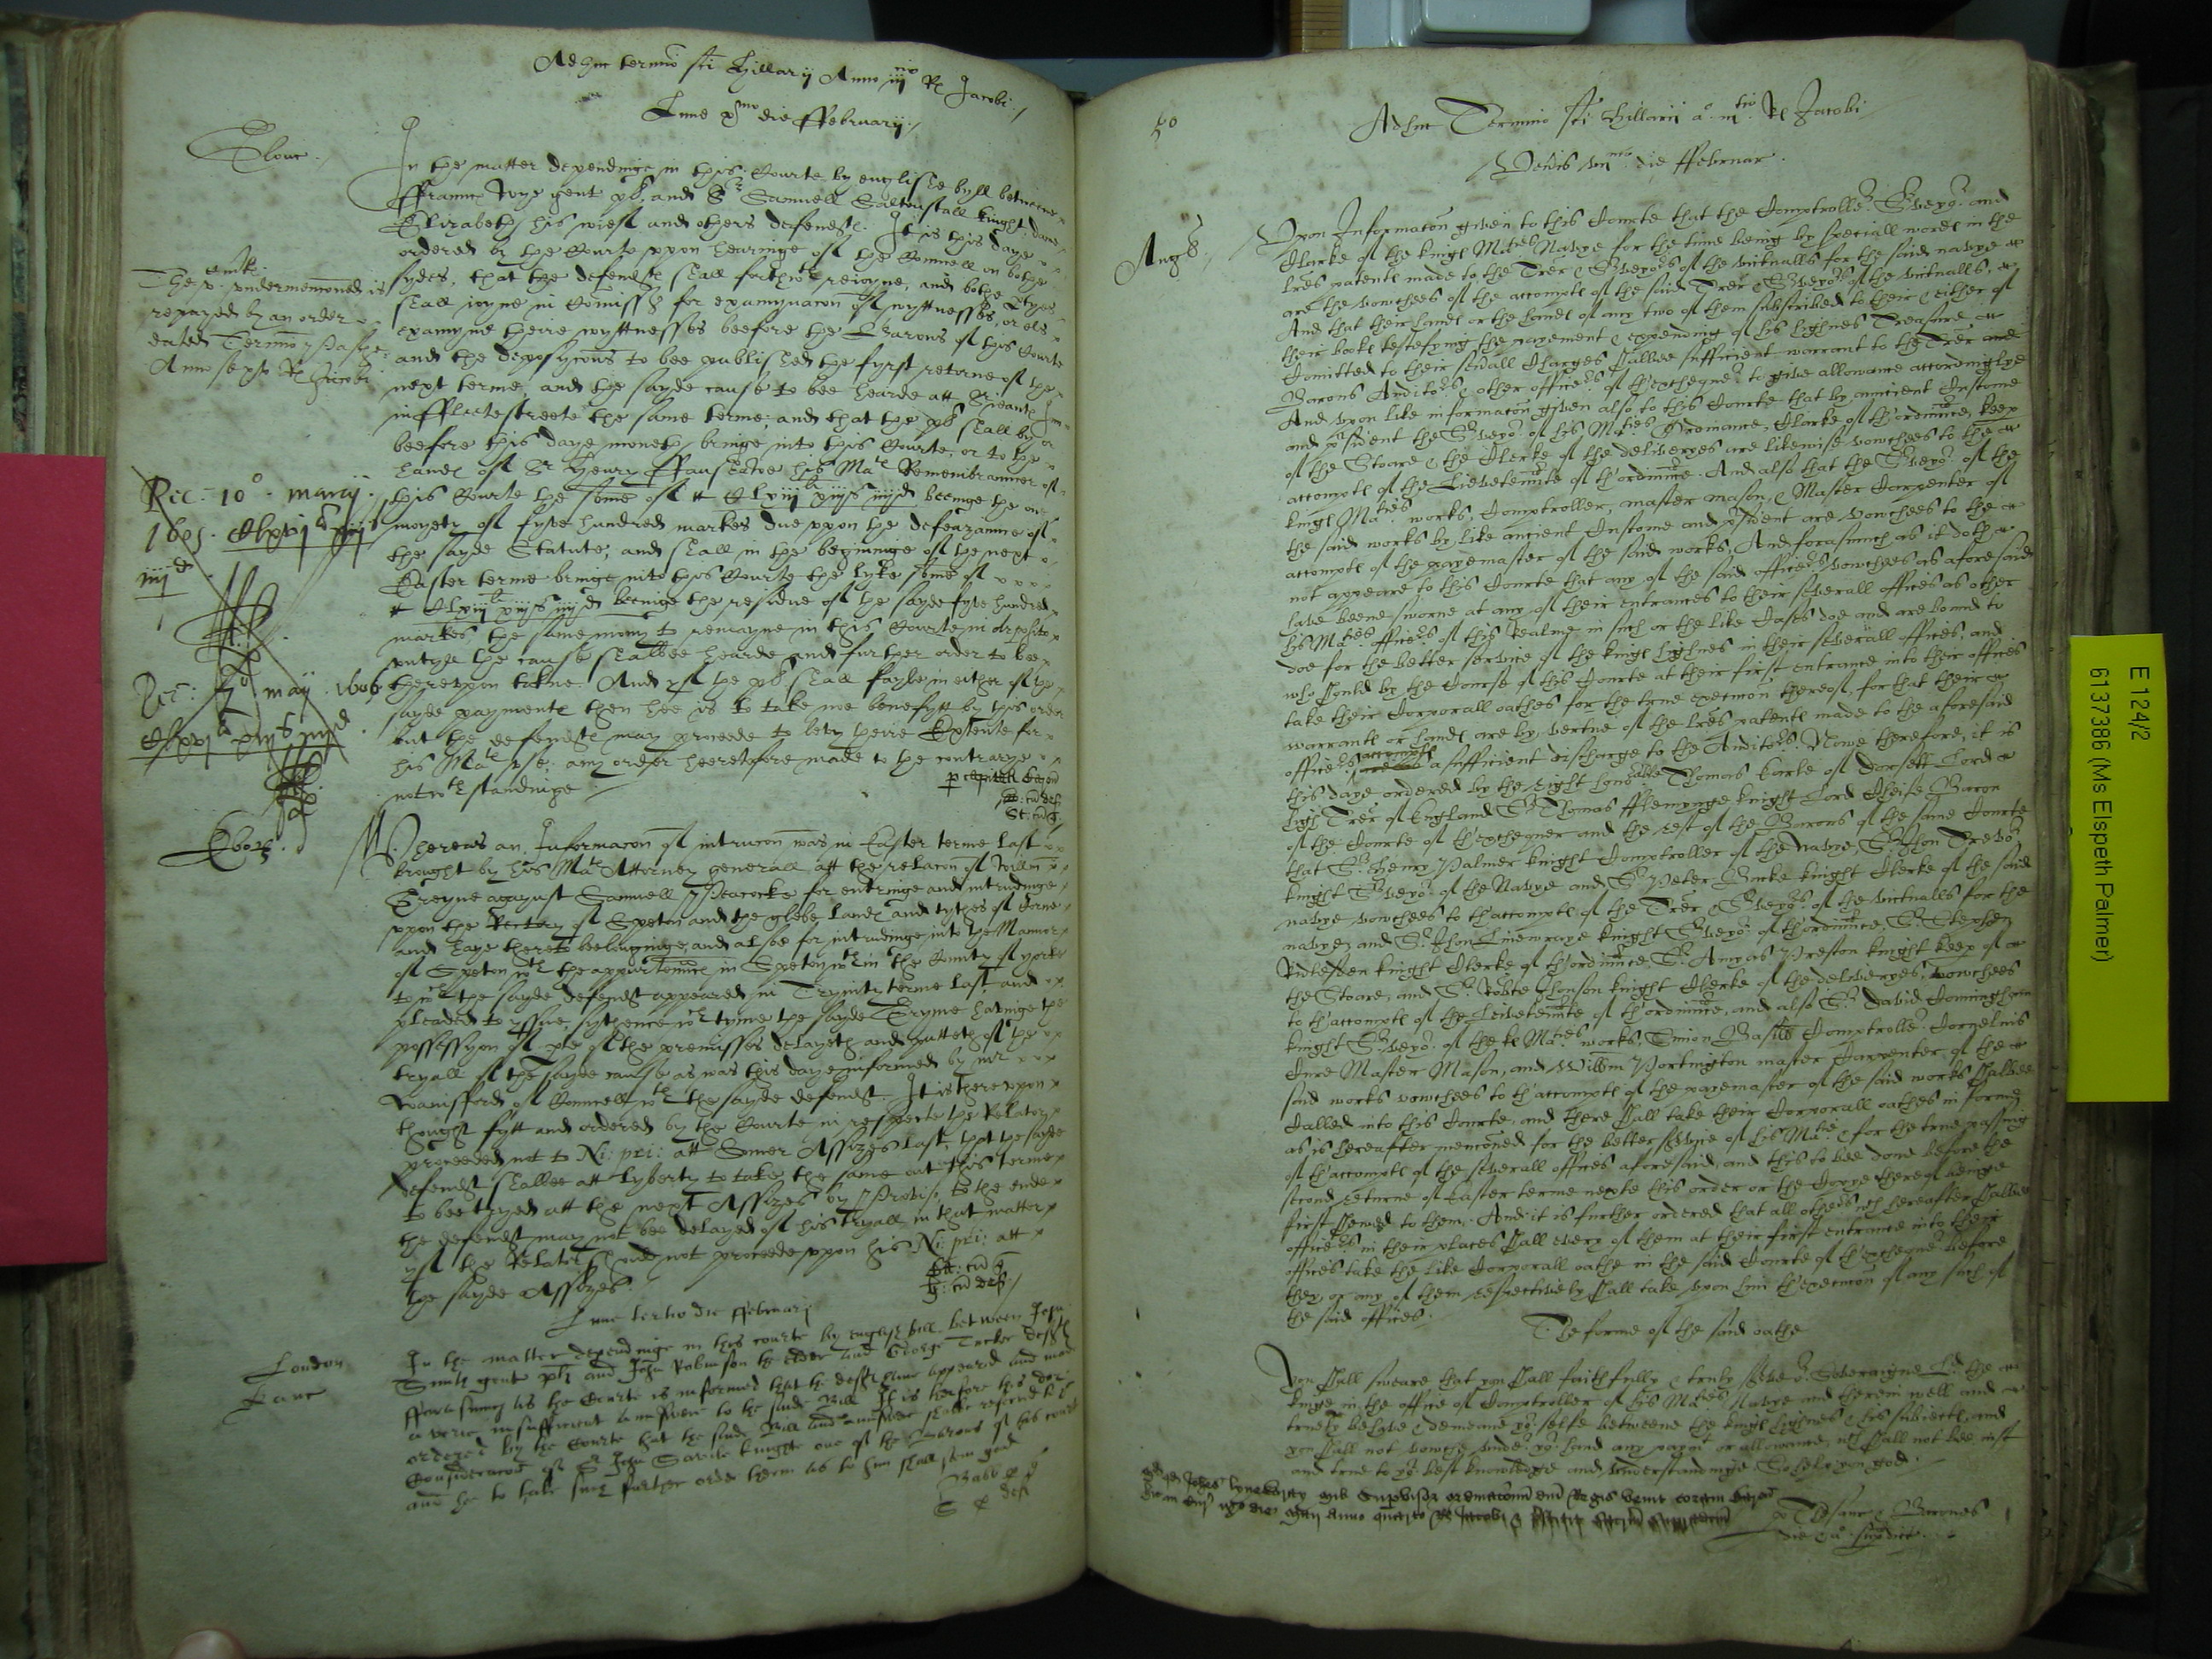 Adhuc termino sci Hillarij Anno iijcio R Jacobi
Lune xmo die ffebruarij
Glouc
In the matter dependinge in this Courte by englishe byll betweene
ffrauncs gent plt and Sr Samuell Saltonstall knight dame
Elizabeth his wieff and others defendts. It is this daye
ordered by the Courte uppon hearinge of the Counsell on bothe
sydes, that the defendts shall forthwth reioyne, and bothe ptyes
shall ioyne in Comission for examynacon of wyttnesses, or els
examyne theire wyttnesses beefore the Barons of this Courte
and the deposycons to bee published the fyrst retorne of the
next terme, and the sayde cause to bee hearde att Srieants Inn
in ffleetestreete the same terme; and that the plt shall by or
beefore this daye moneth bringe into this Courte, or to the
hands of Sr Henry ffanshawe his Mats Remembrauncer of
this Courte the some of Clxvjli xiijs iiijd beeinge the one
moyety of fyve hundred markes due uppon the defeazance of
the sayde Statute, and shall in the beginninge of the next
Easter terme bringe into this Courte the lyke some of
Clxvjli xiijs iiijd beeinge the residue of the sayde fyve hundred
markes the same mony to remayne in this Courte in deposito
untyll the cause shalbee hearde and further order to bee
thereuppon taken. And yf the plt shall fayle in either of the
sayde payments then hee is to take noe benefytt by this order
but the defendts may proceede to levy theire Extente for
his Mats use: any order heeretofore made to the contrarye
notwthstandinge
The undermencioned is
repayed by an order
dated Termino Pasche
Anno septo R Jacobi
Rec: 10o marcij
1605 Clxvjli xiijs
iiijd
Rec: 7o maij 1606
Clxvjli xiijs iiijd
Ebor
Whereas an Informacon of intrucon was in Easter terme last
brought by his Mats Attorney generall att the relacon of Willm
Greyne agaynst Samuell Peacocke for entringe and intrudinge
uppon the Rectory of Speton and the glebe lands and tythes of Corne
and haye thereto beelonginge, and alsoe for intrudinge into the Mannor
of Speton wth the appurtennces in Speton wthin the County of yorke
to wch the sayde defendt appeared in Trynity terme last and
pleaded to yssue, sythence wch tyme the sayde Greyne havinge the
possessyon of pte of the premisses delayeth and putteth of the
tryall of the sayde cause as was this daye informed by mr
Wansford of Counsell wth the sayde defendt. It is thereuppon
thought fytt and ordered by the Courte in respecte the Relator
proceeded not to Ni: pri: att Somer Assizes last, that the sayde
defendt shalbee att lyberty to take the same out this terme
to bee tryed att the next Assizes by Proviso, to the ende
the defendt may not bee delayed of his tryall in that matter
yf the Relator shoulde not proceede uppon his Ni: pri: att
the sayde Assizes.
Lune tertio die ffebruarij
London
Kanc
In the matter dependinge in this courte by english bill between
Smith gent plt and John Robinson the elder and George Tucker defts
fforasmuch as the Courte is informed that the defts have appeared and made
a verie insufficient aunswere to the said Bill It is therfore this day
ordered by the Courte that the said Bill and aunswere shalbe referred to
Consideracon of Sr John Savile knight one of the Barons of this court
and he to take such further order therin as to him shall seem good
50
Adhuc Termino sci Hillarij ao iijtio R Jacobi
Veneris die ffebruar
Angl
Upon Informacon given to this Courte that the Comptroller Surveyor and
Clarke of the kings Maties Navye for the time being by speciall words in the
lres patents made to the Trer & Surveyors of the victualls for the said navye
are the vowchees of the accompts of the said Trer & Surveyors of the victualls,
And that their hands or the hands of any two of them subscribed to their & either of
their books testefying the payement & expending of his highnes Treasure
Comitted to their severall Charges shalbee sufficient warrant to the Trer and
Barons Auditors & other officers of thexchequer to give allowance accordinglye
And upon like informacon given also to this Courte that by auncient Custome
and president the Surveyor of his Maties Ordinance, Clarke of thordinnce, keep
of the Stoare & the Clerke of the deliveryes are likewise vowchees to the
accompts of the Lievetennte of thordinnce. And also that the Surveyor of the
kings Maties works, Comptroller, master mason, & Master Carpenter of
the said works by like ancient Custome and president are vowchees to the
accompts of the paymaster of the said works, And forasmuch as it doth
not appeare to this Courte that any of the said officers vowchees as aforesaid
have beene sworne at any of their entrances to their severall offices as other
his Maties officers of this Realme in such or the like Cases doe and are bound to
doe for the better service of the kings highnes in their severall offices, and
who should by the Course of this Courte at their first entrance into their offices
take their Corporall oathes for the true execucon thereof, for that their
warrants or hands are by vertue of the lres patents made to the aforesaid
officers accompts a sufficient discharge to the Auditors. Nowe therefore, it is
this daye ordered by the right honorable Thomas Earle of Dorsett Lord
high Trer of England Sr Thomas fflemynge knight Lord Cheife Baron
of the Courte of thexchequer and the rest of the Barons of the same Courte
that Sr Henry Palmer knight Comptroller of the Navye, Sr Jhon Trevor
knight Surveyor of the Navye and Sr Peter Bucke knight Clerke of the said
navye vowchees to thaccompts of the Trer & Surveyors of the victualls for the
navye, and Sr Jhon Linewraye knight Surveyor of thordinnce, Sr Stephen
Ridlesden knight Clerke of thordinnce, Sr Amyas Preston knight keep of
the Stoare, and Sr Robte Jhonson knight Clerke of the deliveryes, vowchees
to thaccompts of the Leivetennte of thordinnce, and also Sr David Conningham
knight Surveyor of the ks Maties works, Simon Basill Comptroller, Cornelius
Cure Master Mason, and Willm Portington master Carpenter of the
said works vowchees to thaccompts of the paymaster of the said works shalbee
Called into this Courte, and there shall take their Corporall oathes in forme
as is hereafter menconed for the better service of his Matie & for the true passing
of thaccompts of the severall offices aforesaid, and this to bee done before the
second returne of Easter terme nexte this order or the Copye thereof beinge
first shewed to them. And it is further ordered that all others wch hereafter shalbee
officers in their places shall every of them at their first entrance into their
offices take the like Corporall oathe in the said Courte of thexchequer before
they or any of them respectively shall take upon him thexecucon of any such of
the said offices.
The forme of the said oathe
You shall sweare that you shall faithfully & truly serve or Soveraigne Ld the
kinge in the office of Comptroller of his Maties Navye and therein well and
truely behave & demeane yor selfe betweene the kings highnes & his subiects, and
you shall not vowche under yor hand any paymt or allowance, wch shall not bee iust
and true to yor best knowledge and understandinge. So help you god.
E 124/2
6137386 (Ms Elspeth Palmer)